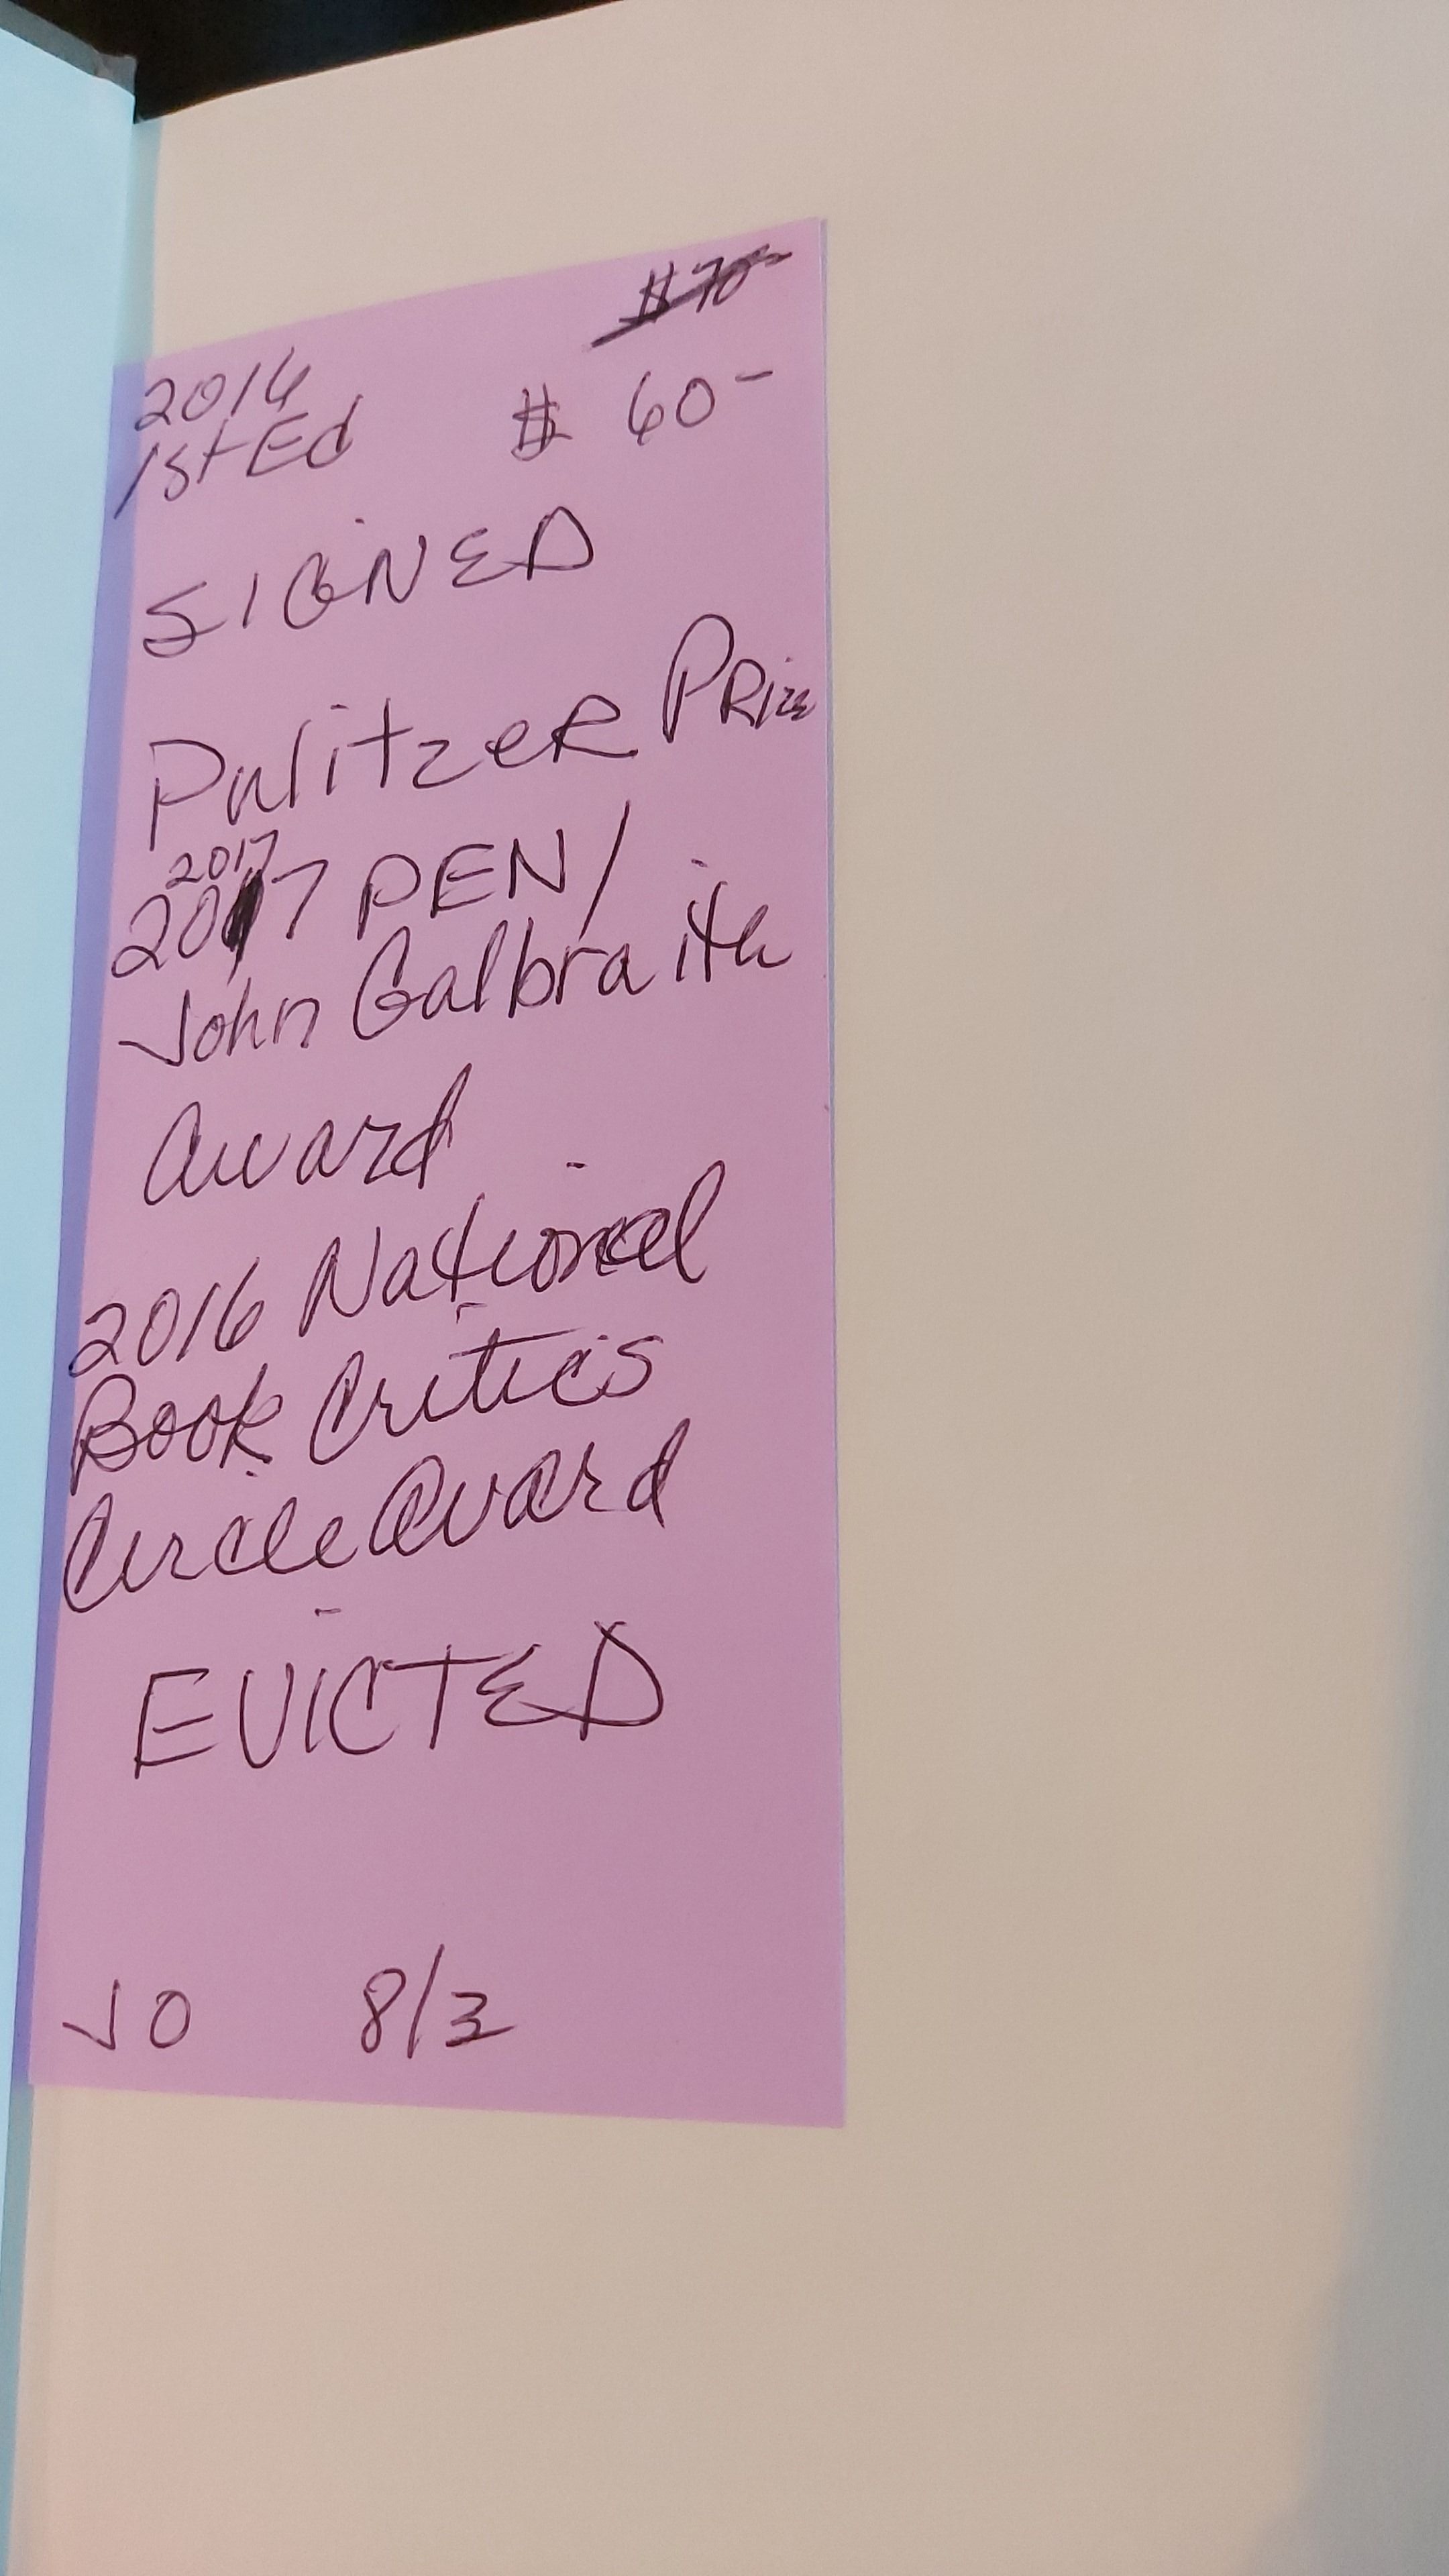 $70-
2016
1st Ed $ 60-
SIGNED
Pulitzer Prize
2017
2017 PEN/
John Galbraith
Award
2016 National
Book Critics
Circle Award
EVICTED
JO 8/2